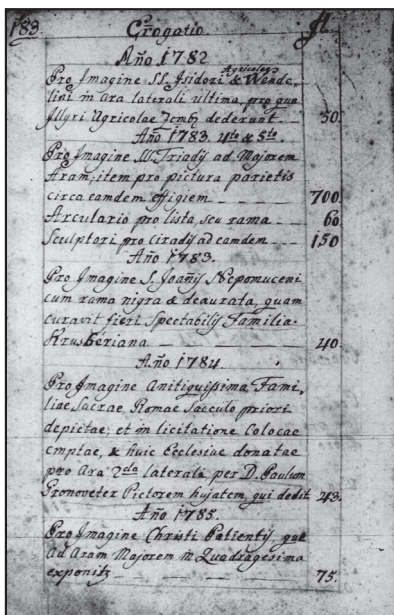 183. Erogatio fl.
Año 1782
Pro Imagine SS. Isidori Agricolae & Wende-
lini in ara laterali ultima, pro qua
Illyri Agricolae dederunt 50.
Año 1783. 4to & 5to.
Pro Imagine SS. Triadis ad Majorem
Aram; item pro pictura parietis
circa eamdem effigiem 700.
Arculario pro lista, seu rama 60.
Sculptori pro ciradis ad eamdem 150
Año 1783.
Pro Imagine S. Joañis Nepomuceni
cum rama nigra & deaurata, quam
curavit fieri Spectabilis Familia
Krusberiana 40.
Año 1784.
Pro Imagine Antiquissima Fami-
liae Sacrae Romae saeculo priori
depictae; et in licitatione Colocae
emptae, & huic Ecclesiae donatae
pro Ara 2da laterali per D. Paulum
Kronoveter Pictorem hujatem, qui dedit 43.
Año 1785.
Pro Imagine Christi Patientis, quae
ad Aram Majorem in Quadragesima
exponitr 75.